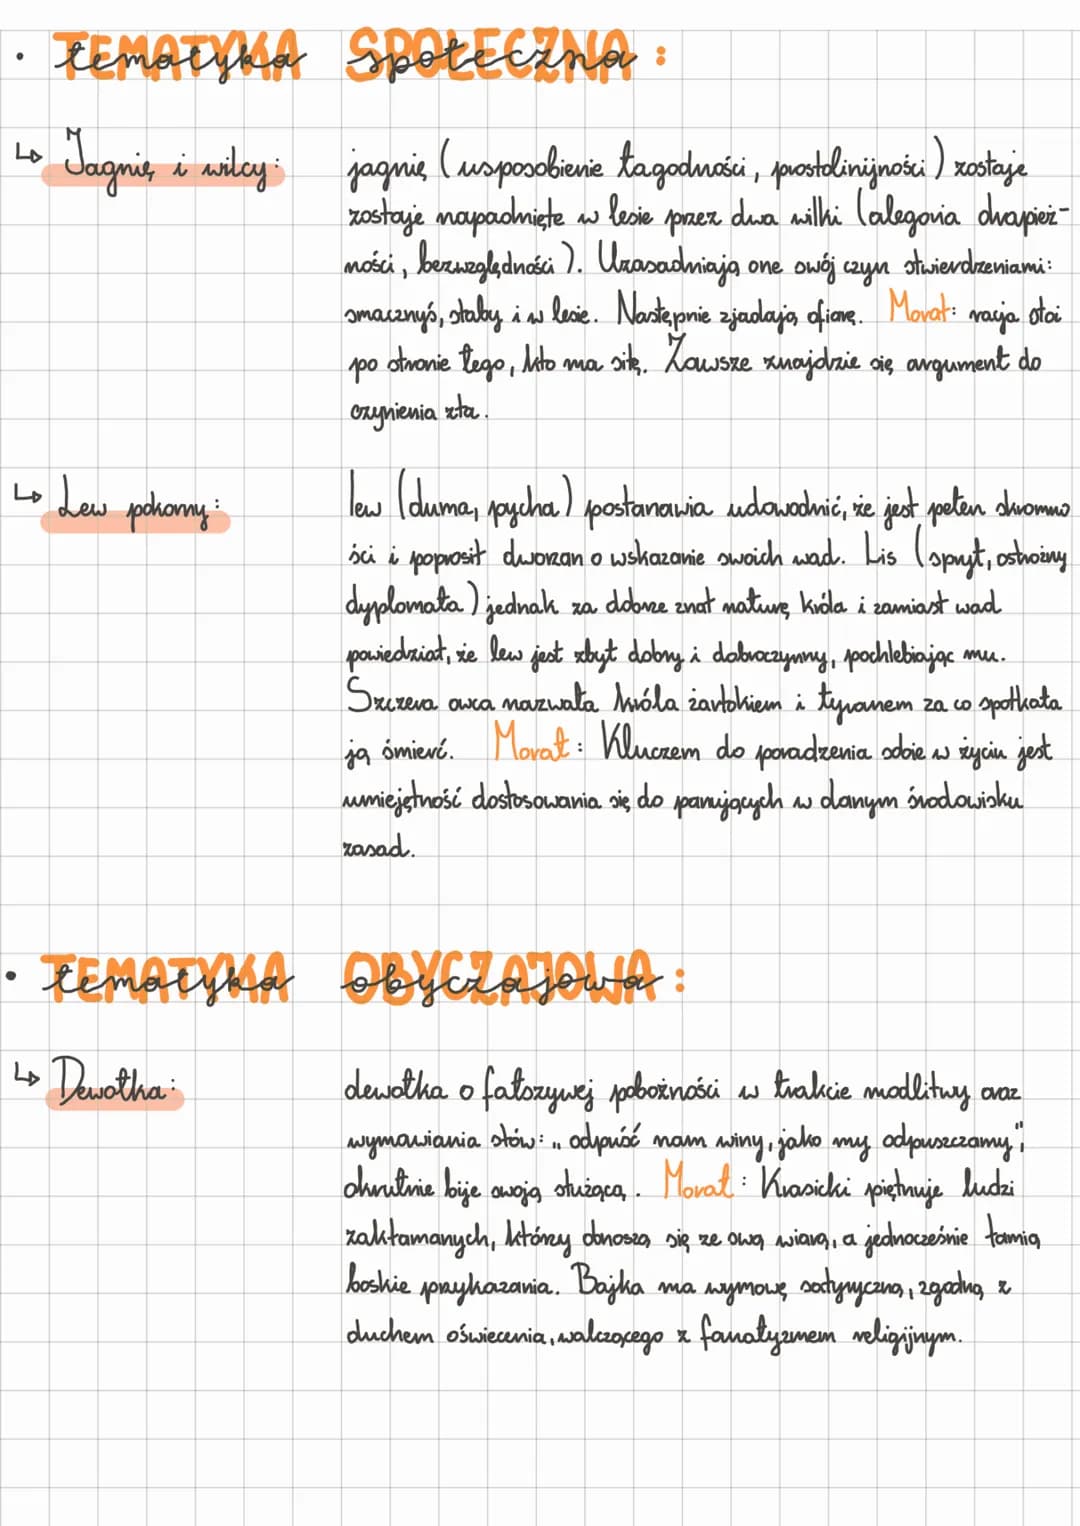 • TEMATYKA SPOŁECZNA :
↳ Jagnię i wilcy: jagnię (usposobienie łagodności, prostolinijności) zostaje
zostaje napadnięte w lesie przez dwa wilki (alegoria drapież-
ności, bezwzględności). Uzasadniają one swój czyn stwierdzeniami:
smacznyś, słaby i w lesie. Następnie zjadają ofiarę. Morał: racja stoi
po stronie tego, kto ma siłę. Zawsze znajdzie się argument do
czynienia zła.
↳ Lew pokorny: lew (duma, pycha) postanawia udowodnić, że jest pełen skromno
ści i poprosił dworzan o wskazanie swoich wad. Lis (spryt, ostrożny
dyplomata) jednak za dobrze znał naturę króla i zamiast wad
powiedział, że lew jest zbyt dobry i dobroczynny, pochlebiając mu.
Szczera owca nazwała króla żarłokiem i tyranem za co spotkała
ją śmierć. Morał: Kluczem do poradzenia sobie w życiu jest
umiejętność dostosowania się do panujących w danym środowisku
zasad.
• TEMATYKA OBYCZAJOWA :
↳ Dewotka: dewotka o fałszywej pobożności w trakcie modlitwy oraz
wymawiania słów: „ odpuść nam winy, jako my odpuszczamy",
okrutnie bije swoją służącą. Morał: Krasicki piętnuje ludzi
zakłamanych, którzy obnoszą się ze swą wiarą, a jednocześnie łamią
boskie przykazania. Bajka ma wymowę satyryczną, zgodną z
duchem oświecenia, walczącego z fanatyzmem religijnym.